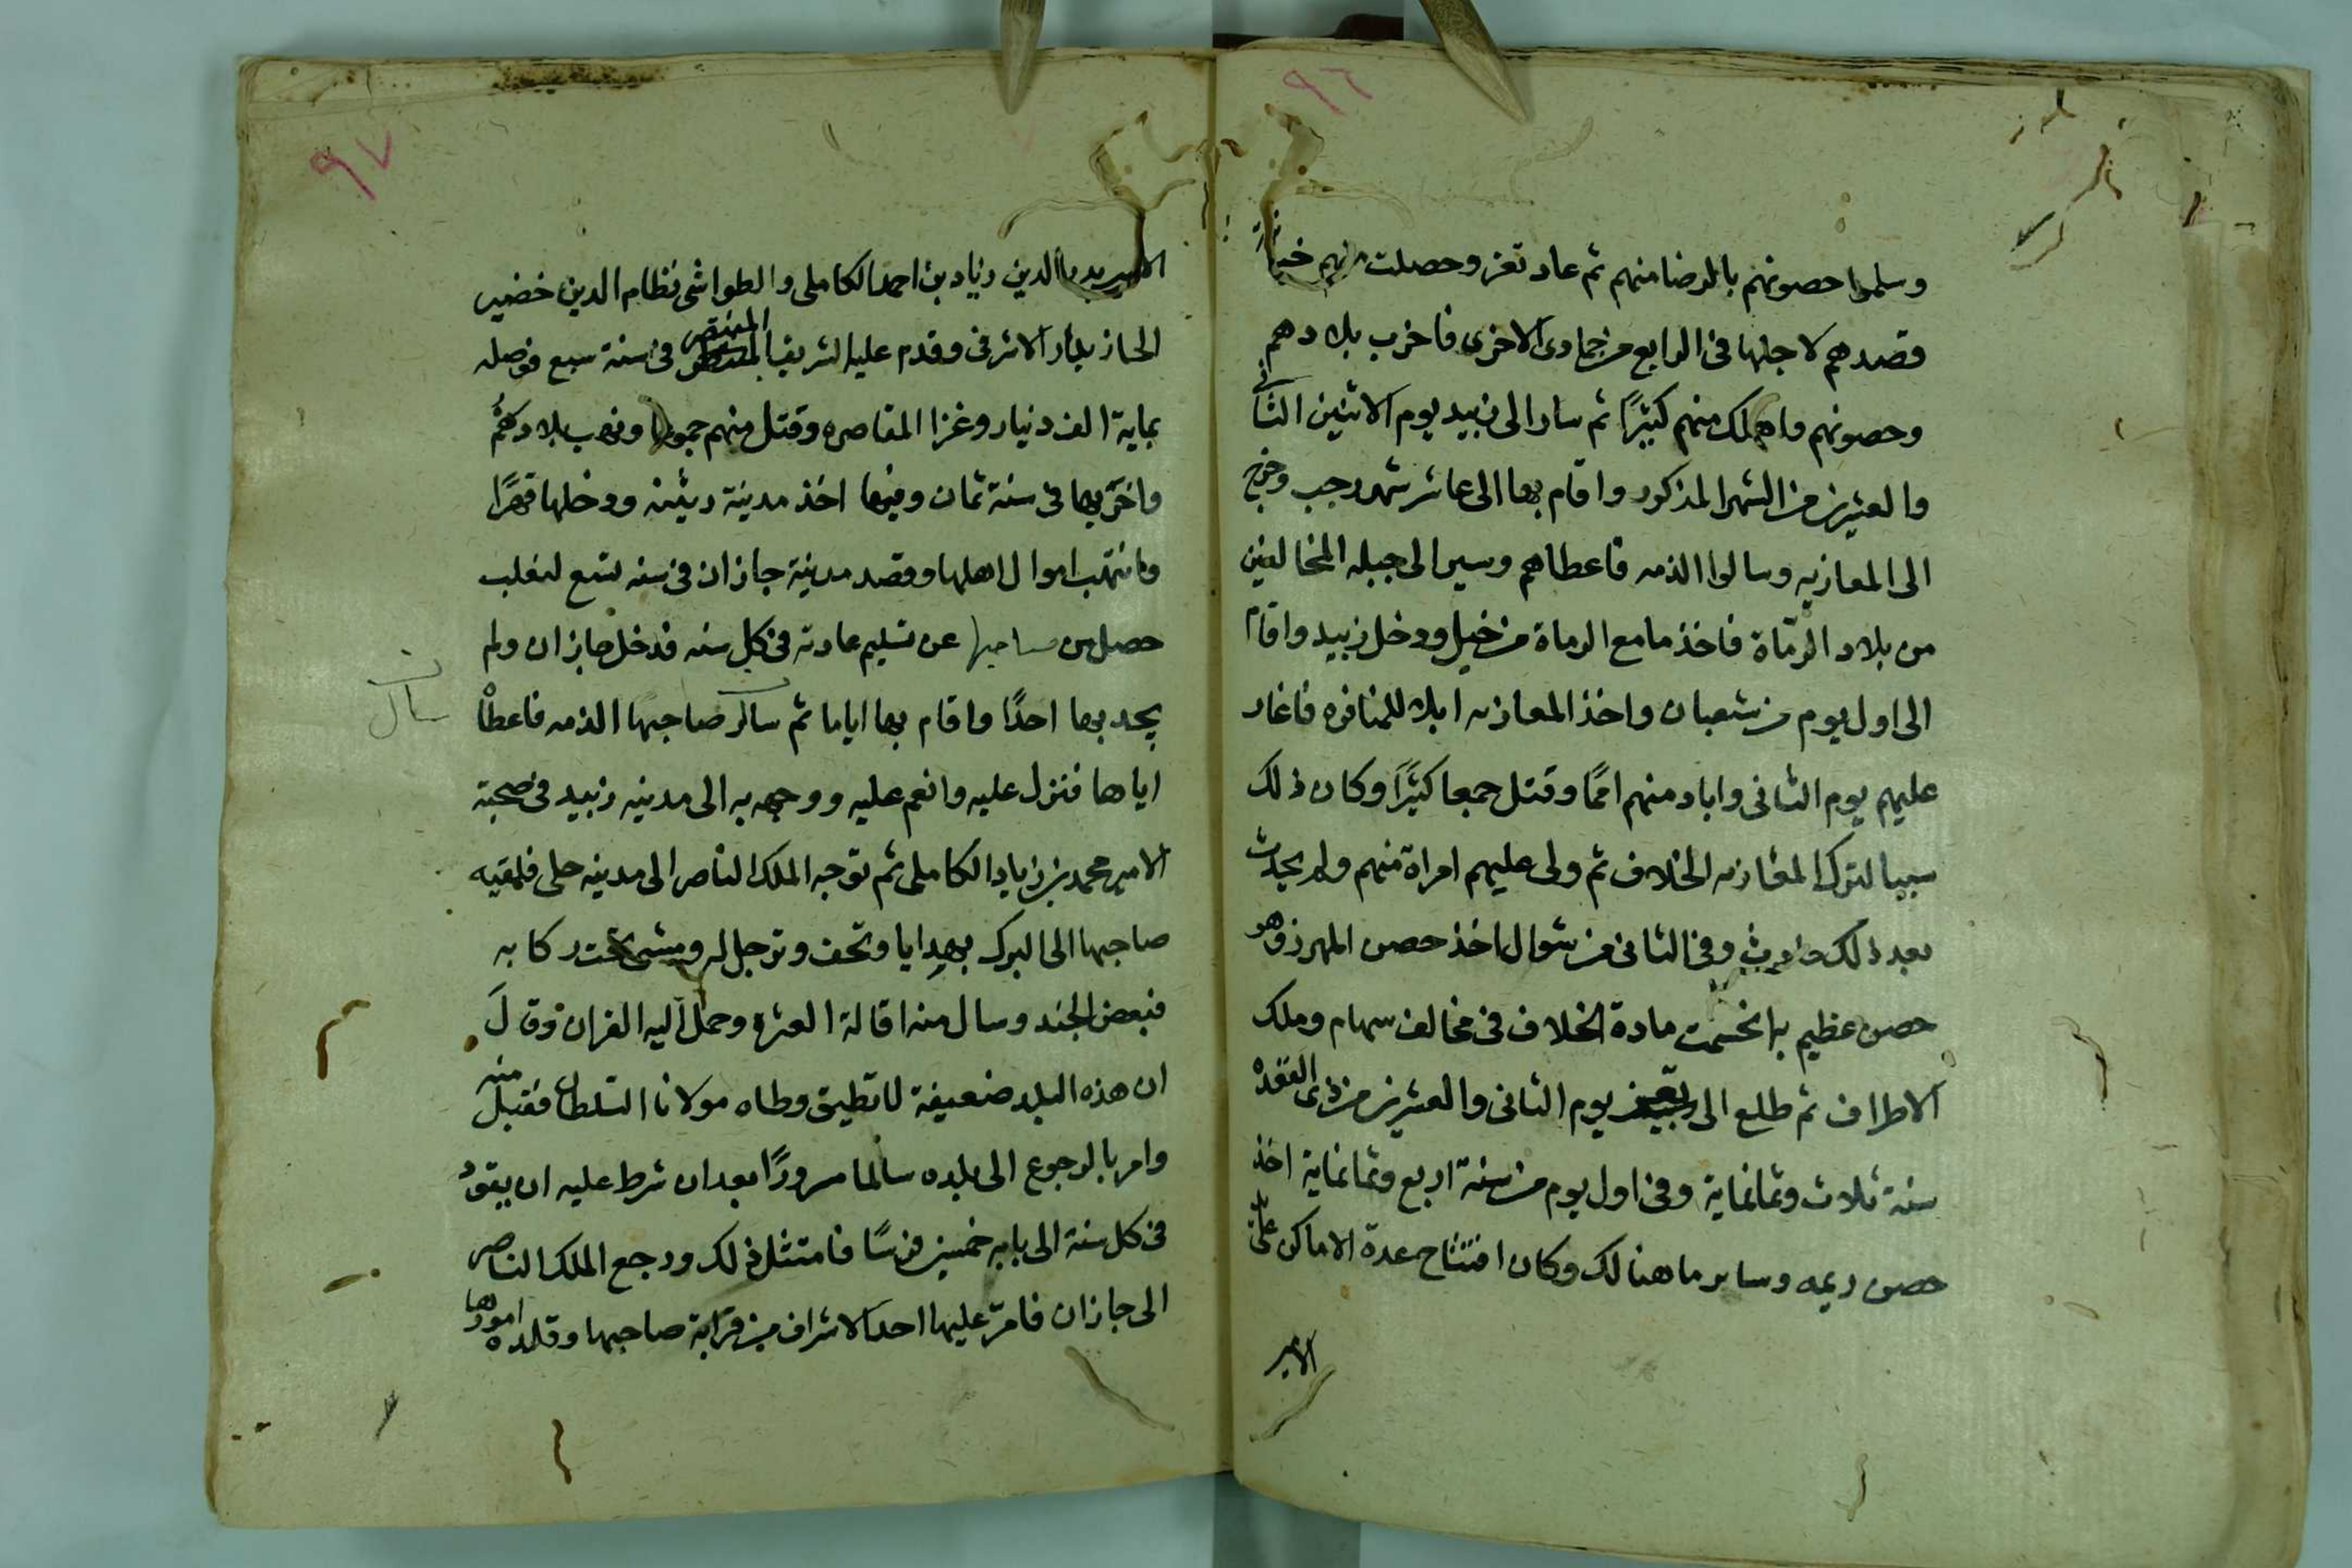 ٩٦
وسلموا حصونهم بالرضا منهم ثم عاد تعز وحصلت منهم خيانة
فقصدهم لاجلها في الرابع من جمادى الاخرى فاخرب بلادهم
وحصونهم واهلك منهم كثيرًا ثم سار الى زبيد يوم الاثنين الثاني
والعشرين من الشهر المذكور واقام بها الى عاشر شهر رجب وخرج
الى المعازبه وسالوا الذمه فاعطاهم وسير الى جبله المخالفين
من بلاد الرمّاة فاخذ ما مع الرماة من خيل ودخل زبيد واقام
الى اول يوم من شعبان واخذ المعازبه ابلا للمنافره فاغار
عليهم يوم الثاني واباد منهم اممًا وقتل جمعا كثيرًا وكان ذلك
سببا لترك المعازبه الخلاف ثم ولى عليهم امراة منهم ولم يحدث
بعد ذلك حادث وفي الثاني من شوال اخذ حصن المهرزق وهو
حصن عظيم به انحسمت مادة الخلاف في مخالف سهام وملك
الاطراف ثم طلع الى تعز يوم الثاني والعشرين من ذى القعده
سنة ثلاث وثمانماية وفي اول يوم من سنة اربع وثمانماية اخذ
حصن ريمه وساير ما هنالك وكان افتتاح عدة الاماكن على يد
الامير
٩٧
الامير بدر الدين زياد بن احمد الكاملي والطواشى نظام الدين خضير
الحازندار الاشرفى وقدم عليه الشريف المنتصر في سنة سبع فوصله
بماية الف دينار وغزا المقاصره وقتل منهم جموعا ونهب بلادهم
واخرّبها في سنة ثمان وفيها اخذ مدينة دثينه ودخلها قهرًا
وانتهب اموال اهلها وقصد مدينة جازان في سنه تسع لتغلب
حصل من صاحبها عن تسليم عادته في كل سنه فدخل جازان ولم
يجد بها احدًا واقام بها اياما ثم سال صاحبها الذمه فاعطاه
سال
اياها فنزل عليه وانعم عليه ووجهه به الى مدينه زبيد في صحبة
الامير محمد بن زياد الكاملى ثم توجه الملك الناصر الى مدينه حلى فلقيه
صاحبها الى البرك بهدايا وتحف وترجل له ومشى تحت ركابه
فبعض الجند وسال منه اقالة العثره وحمل اليه الفران وقال
ان هذه البلد ضعيفة لا تطيق وطاه مولانا السلطان فقبل منه
وامر بالرجوع الى بلده سالما مسرورًا بعد ان شرط عليه ان يقود
في كل سنة الى بابه خمسين فرسًا فامتثل ذلك ورجع الملك الناصر
الى جازان فامرّ عليها احد الاشراف من قرابة صاحبها وقلده امورها